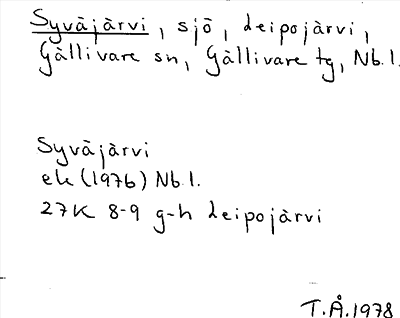 Syväjärvi, sjö, Leipojärvi,
Gällivare sn, Gällivare tg, Nb.l.
Syväjärvi
ek (1976) Nb.l.
27K 8-9 g-h Leipojärvi
T.Å.1978